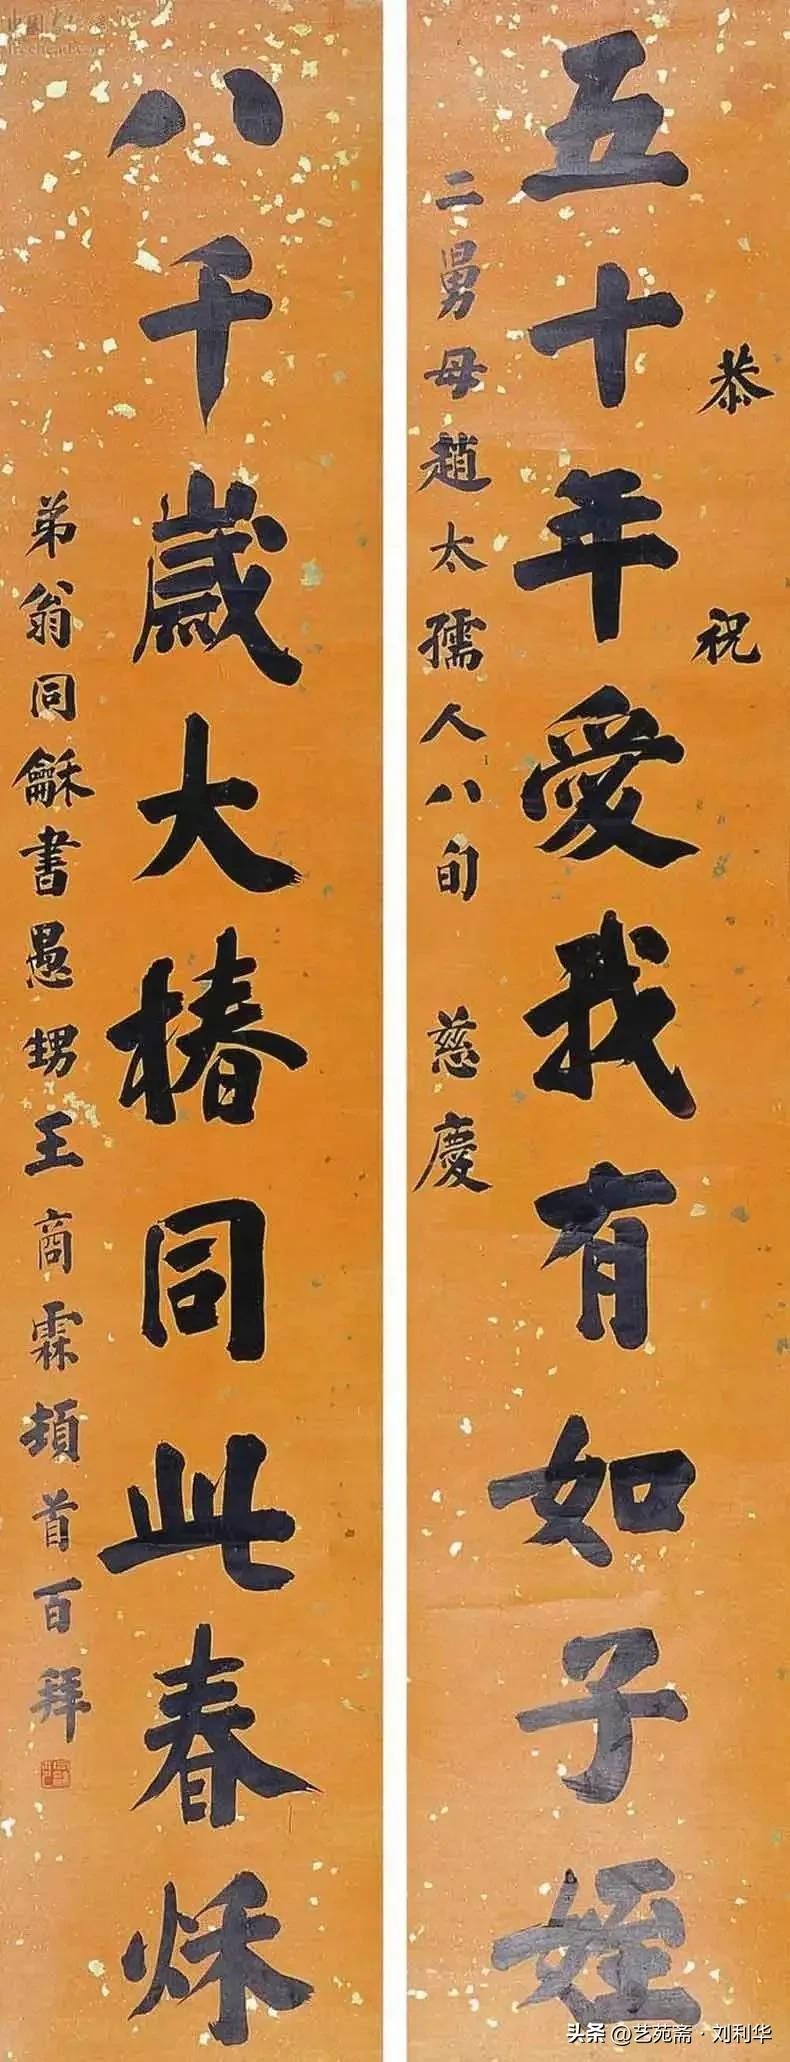 恭祝
五十年愛我有如子姪
二舅母趙太孺人八旬 慈慶
八千歲大椿同此春秌
弟翁同龢書愚甥王商霖頓首百拜
头条 @艺苑斋·刘利华